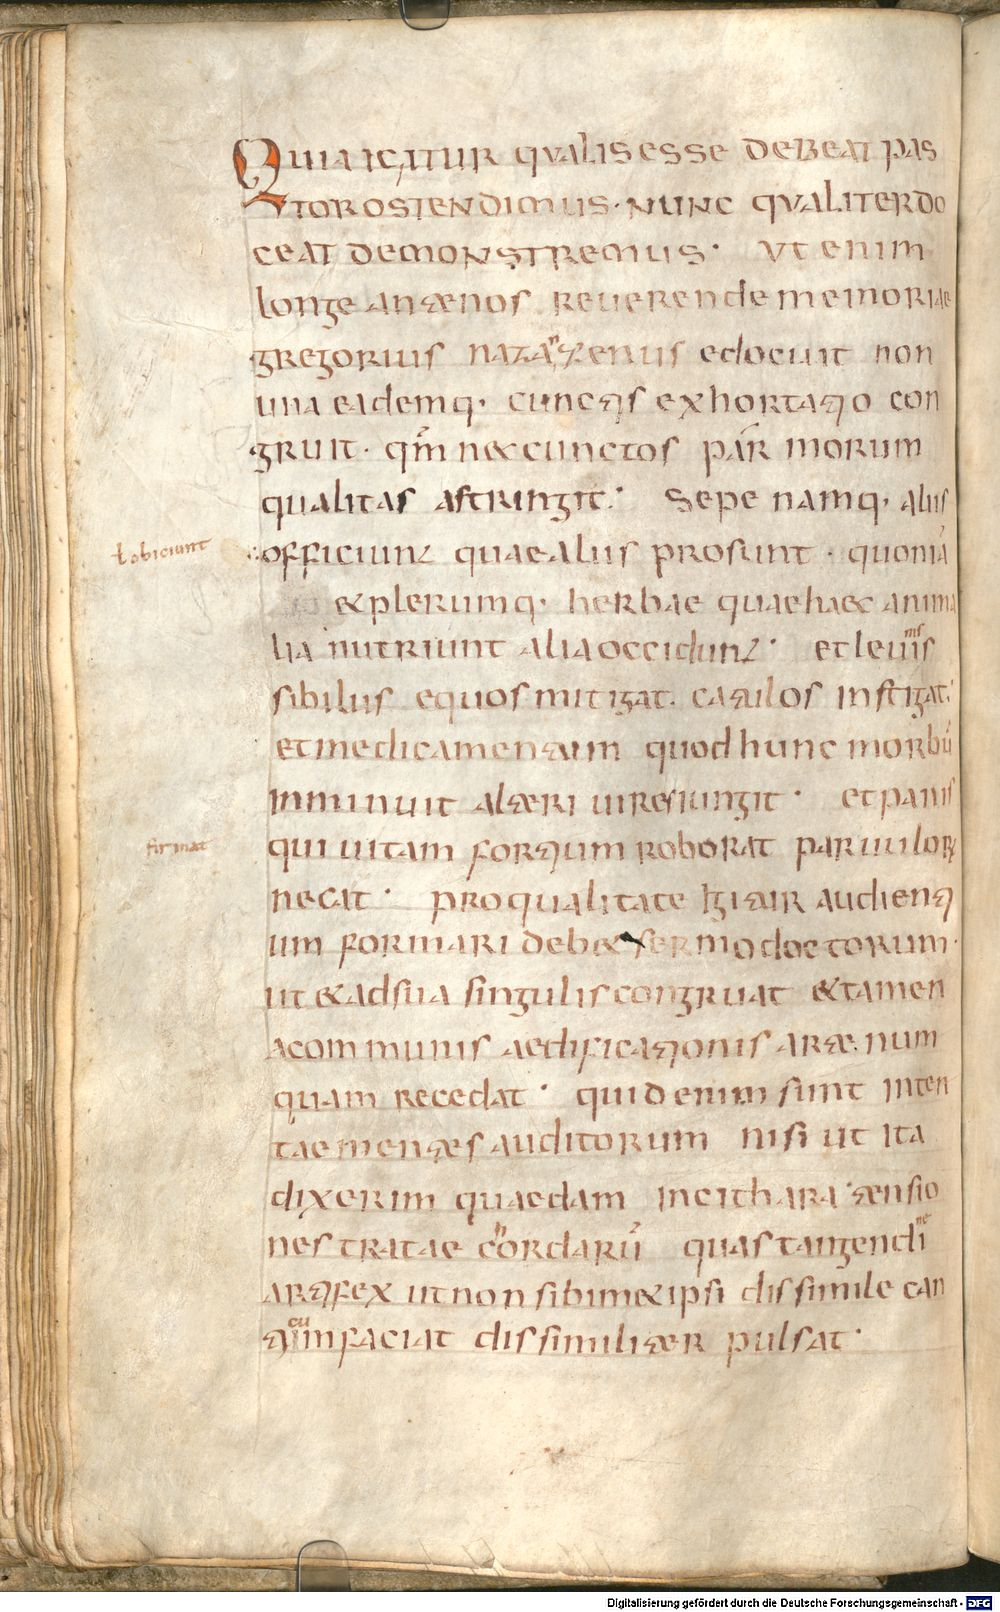 QUIA IGITUR QVALIS ESSE DEBEAT PAS
TOR OSTENDIMUS · NUNC QVALITER DO
CEAT DEMONSTREMUS · Vt enim
longe ante nos reuerende memoriae
gregorius nazanzenus edocuit non
una eademq· cunctis exhortatio con
gruit · qm̄ nec cunctos par morum
qualitas astringit · Sepe namq· aliis
officiunt quae aliis prosunt · quoniā
ł obiciunt
et plerumq· herbae quae haec anima
lia nutriunt alia occidunt · et leuis
sibilus equos mitigat · catulos instigat ·
et medicamentum quod hunc morbū
inminuit alteri uires iungit · et panis
qui uitam fortium roborat paruulorꝝ
firmat
necat · pro qualitate igitur audienti
um formari debet sermo doctorum ·
ut et ad sua singulis congruat et tamen
a communis aedificationis arte num
quam recedat · quid enim sunt inten
tae mentes auditorum nisi ut ita
dixerim quaedam in cithara tensio
nes tratae chordarū quas tangendi
artifex ut non sibimet ipsi dissimile can
ticum faciat dissimiliter pulsat ·
Digitalisierung gefördert durch die Deutsche Forschungsgemeinschaft - DFG